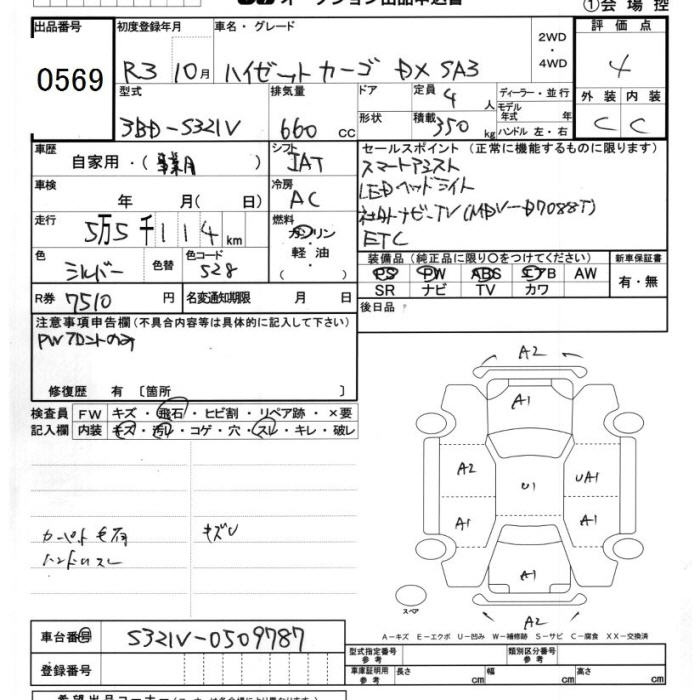 オークション出品申込書
①会場控
出品番号 初度登録年月 車名・グレード 2WD ・ 4WD 評価点
0569 R3 10月 ハイゼットカーゴ DX SA3 4
型式 排気量 ドア 定員 4人 ディーラー・並行 外装 内装
3BD-S321V 660 CC 形状 積載 350 kg モデル年式 年 C C
ハンドル 左・右
車歴 シフト セールスポイント (正常に機能するものに限ります)
自家用・(事業用) IAT スマートアシスト
車検 冷房 LEDヘッドライト
年 月( 日) AC 社外ナビ-TV(MDV-D7088T)
走行 燃料 ETC
5万5千114km ガソリン・軽油
色 色替 色コード 装備品(純正品に限り〇をつけてください) 新車保証書
シルバー 528 PS PW ABS エアB AW 有・無
SR ナビ TV カワ
R券 7510 円 名変通知期限 月 日 後日品
注意事項申告欄(不具合内容等は具体的に記入して下さい)
PWフロントのみ
修復歴 有 〔箇所 〕
検査員 FW キズ・飛石・ヒビ割・リペア跡・×要
記入欄 内装 キズ・汚レ・コゲ・穴・スレ・キレ・破レ
カーペット毛羽 キズU
ハンドルスレ
A2
A1
A2 U1 UA1
A1 A1
A1
スペア A2
A-キズ E-エクボ U-凹み W-補修跡 S-サビ C-腐食 XX-交換済
車台番号 S321V-0509787 型式指定番号 参考 類別区分番号 参考
登録番号 車庫証明用 参考 長さ cm 幅 cm 高さ cm